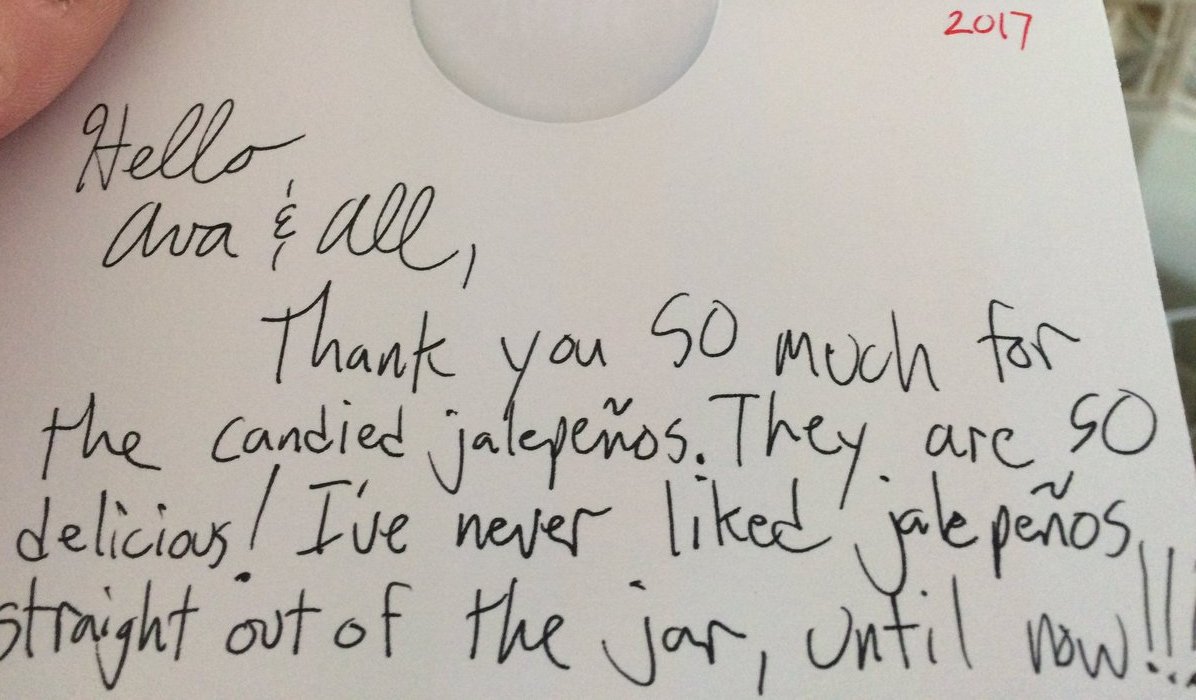 2017
Hello
Ava & All,
Thank you SO much for
the candied jalepeños. They are SO
delicious! I've never liked jalepeños
straight out of the jar, until now!!!